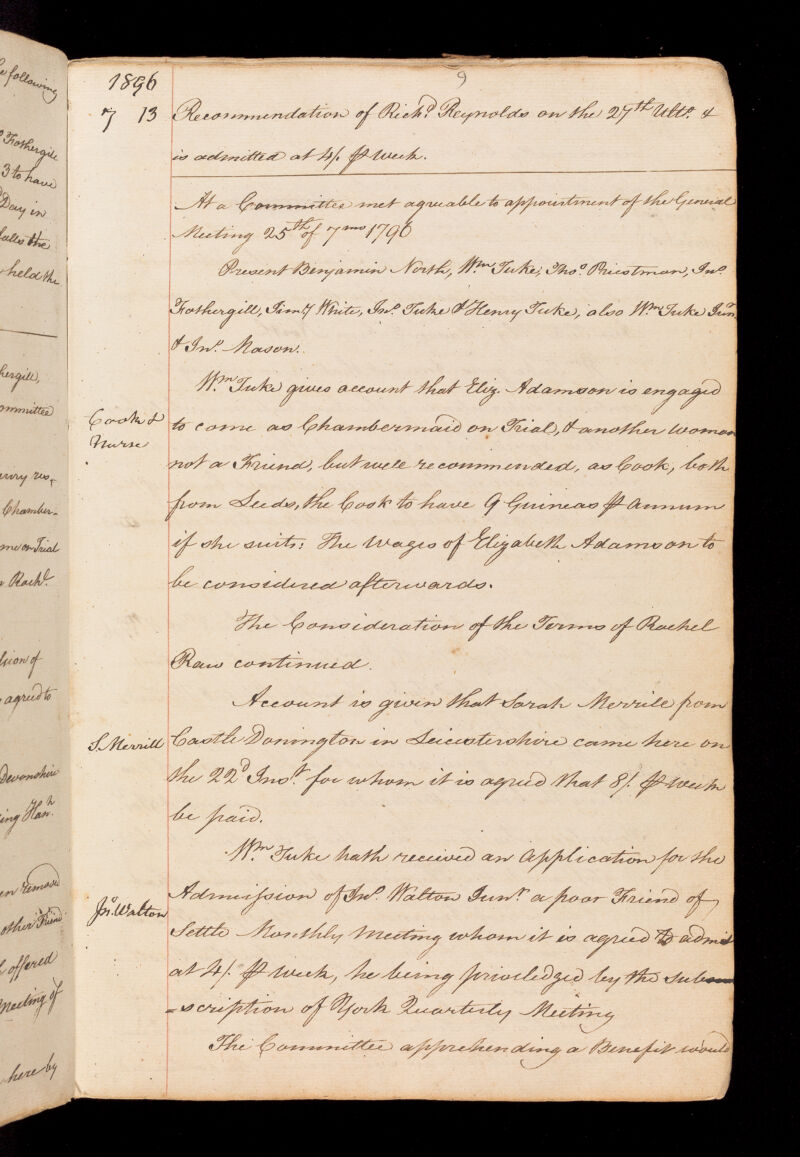 e following
Fothergill
3 to have
Day in
falls the
held the
hergill,
ommittee
enry res,
Chamber-
me on Trial
Rachl
lusion of
agreed to
Devonshire
ing Hanh
en removed
other Friend
offered
Meeting of
here by
9
1896
7 13 Recommendation of Richd. Reynolds on the 27th Ulto. &
is admitted at 4/. ⅌ week.
At a Committee met agreable to appointment of the General
Meeting 25th of 7mo 1796
Present Benjamin North, Wm Tuke, Thos. Priestman, Jno.
Fothergill, Timy White, Jno. Tuke & Henry Tuke, also Wm Tuke Junr
& Jno. Mason.
Wm Tuke gives account that Eliz. Adamson is engaged
Cook &
Nurse
to come as Chambermaid on Trial, & another woman
not a Friend, but well recommended, as Cook, both
from Leeds, the Cook to have 9 Guineas ⅌ annum
if she suits: The Wages of Elizabeth Adamson to
be considered afterwards.
The Consideration of the Terms of Rachel
Raw continued.
Account is given that Sarah Merrill from
S. Merrill
Castle Donington in Leicestershire came here on
the 22d Inst. for whom it is agreed that 8/. ⅌ week
be paid.
Wm. Tuke hath received an Application for the
Jn. Walton
Admission of Jno. Walton Junr. a poor Friend of
Settle Monthly Meeting whom it is agreed to admit
at 4/. ⅌ week, he being priviledged by the sub
=scription of York Quarterly Meeting
The Committee apprehending a Benefit would